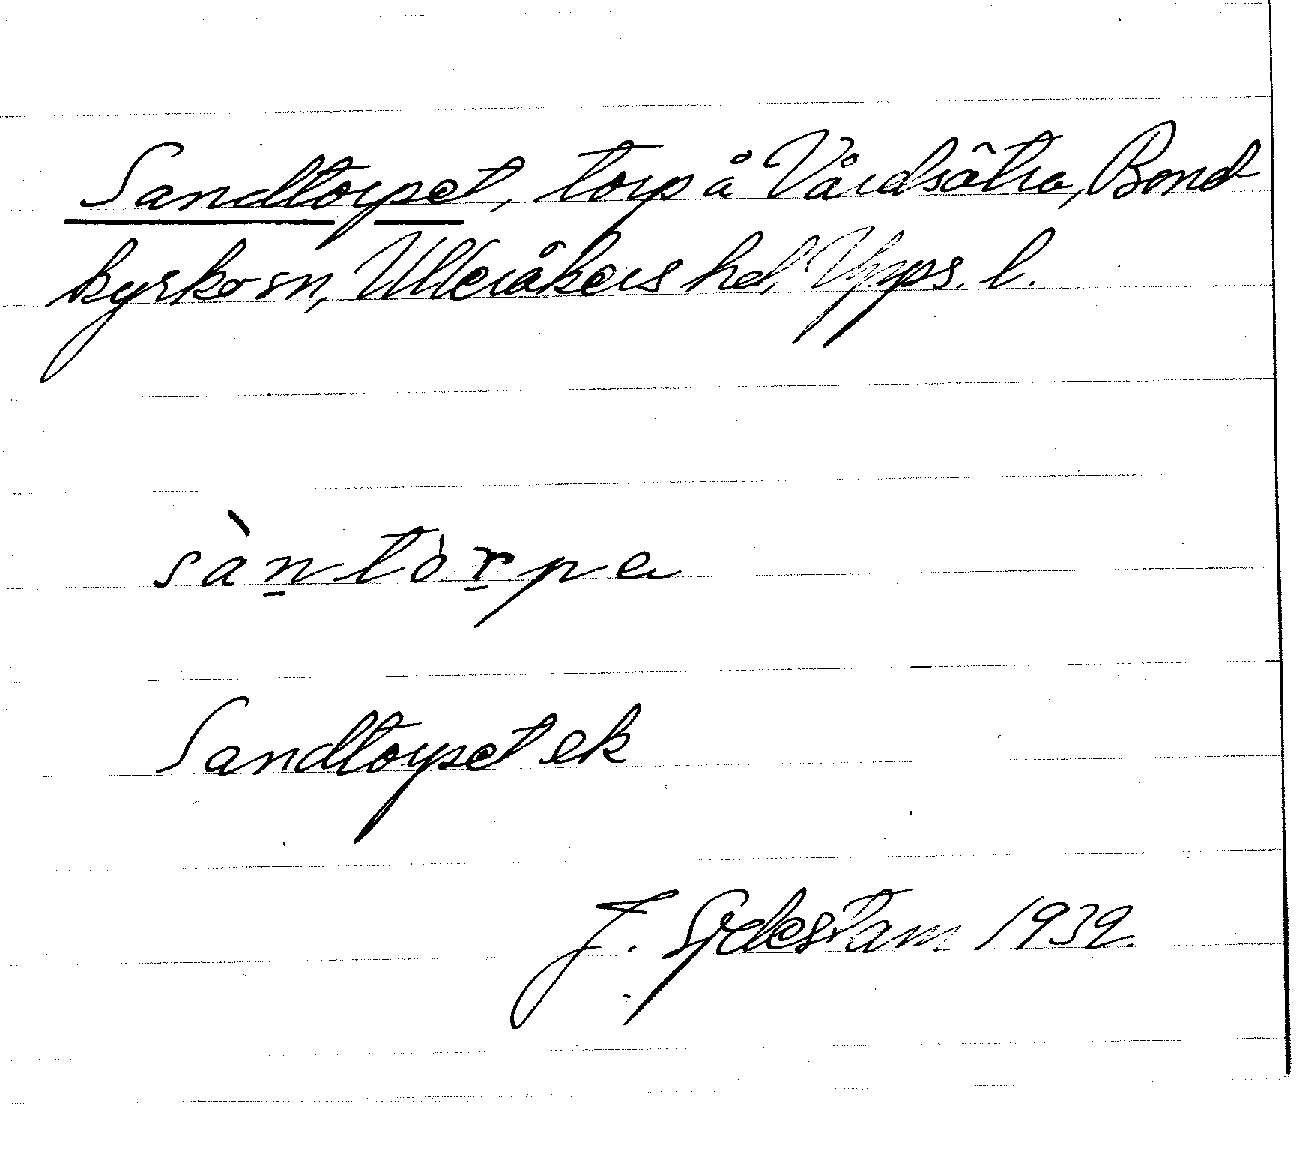 Sandtorpet, torp å Vårdsätra, Bond
kyrko sn, Ulleråkers hd, Upps. l.
sàn̲tòr̲pa
Sandtorpet ek
J. 1939.